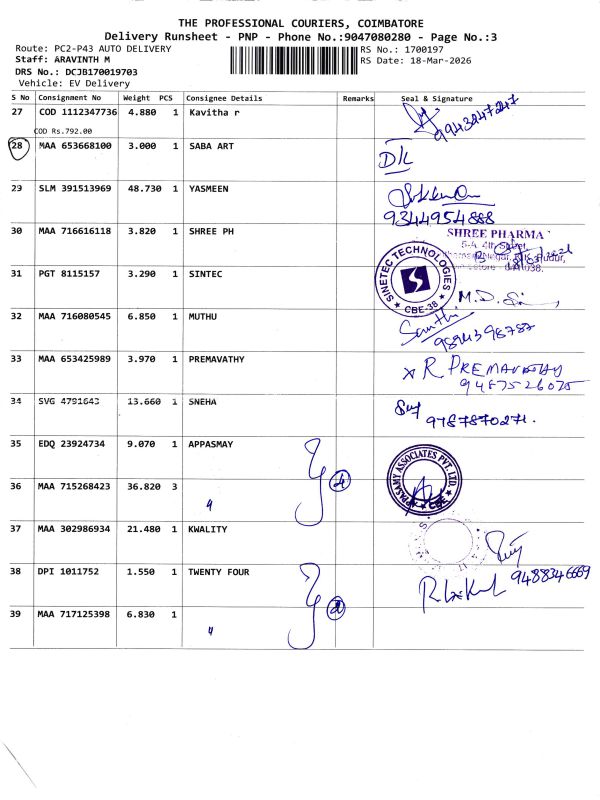 THE PROFESSIONAL COURIERS, COIMBATORE
Delivery Runsheet - PNP - Phone No.:9047080280 - Page No.:3
Route: PC2-P43 AUTO DELIVERY RS No.: 1700197
Staff: ARAVINTH M RS Date: 18-Mar-2026
DRS No.: DCJB170019703
Vehicle: EV Delivery
S No Consignment No Weight PCS Consignee Details Remarks Seal & Signature
27 COD 1112347736 4.880 1 Kavitha r 9943247247
COD Rs.792.00
28 MAA 653668100 3.000 1 SABA ART D/L
29 SLM 391513969 48.730 1 YASMEEN
9344954888
30 MAA 716616118 3.820 1 SHREE PH SHREE PHARMA
5-A, 4th Street,
31 PGT 8115157 3.290 1 SINTEC SINETEC TECHNOLOGIES S CBE-38 M.D.
32 MAA 716080545 6.850 1 MUTHU Santhi
9894398787
33 MAA 653425989 3.970 1 PREMAVATHY x R PREMAVATHY
9487526075
34 SVG 4791643 13.660 1 SNEHA
9787870271.
35 EDQ 23924734 9.070 1 APPASMAY 4 APPASAMY ASSOCIATES PVT. LTD. CBE
36 MAA 715268423 36.820 3 "
37 MAA 302986934 21.480 1 KWALITY
38 DPI 1011752 1.550 1 TWENTY FOUR 2 9488346669
39 MAA 717125398 6.830 1 "